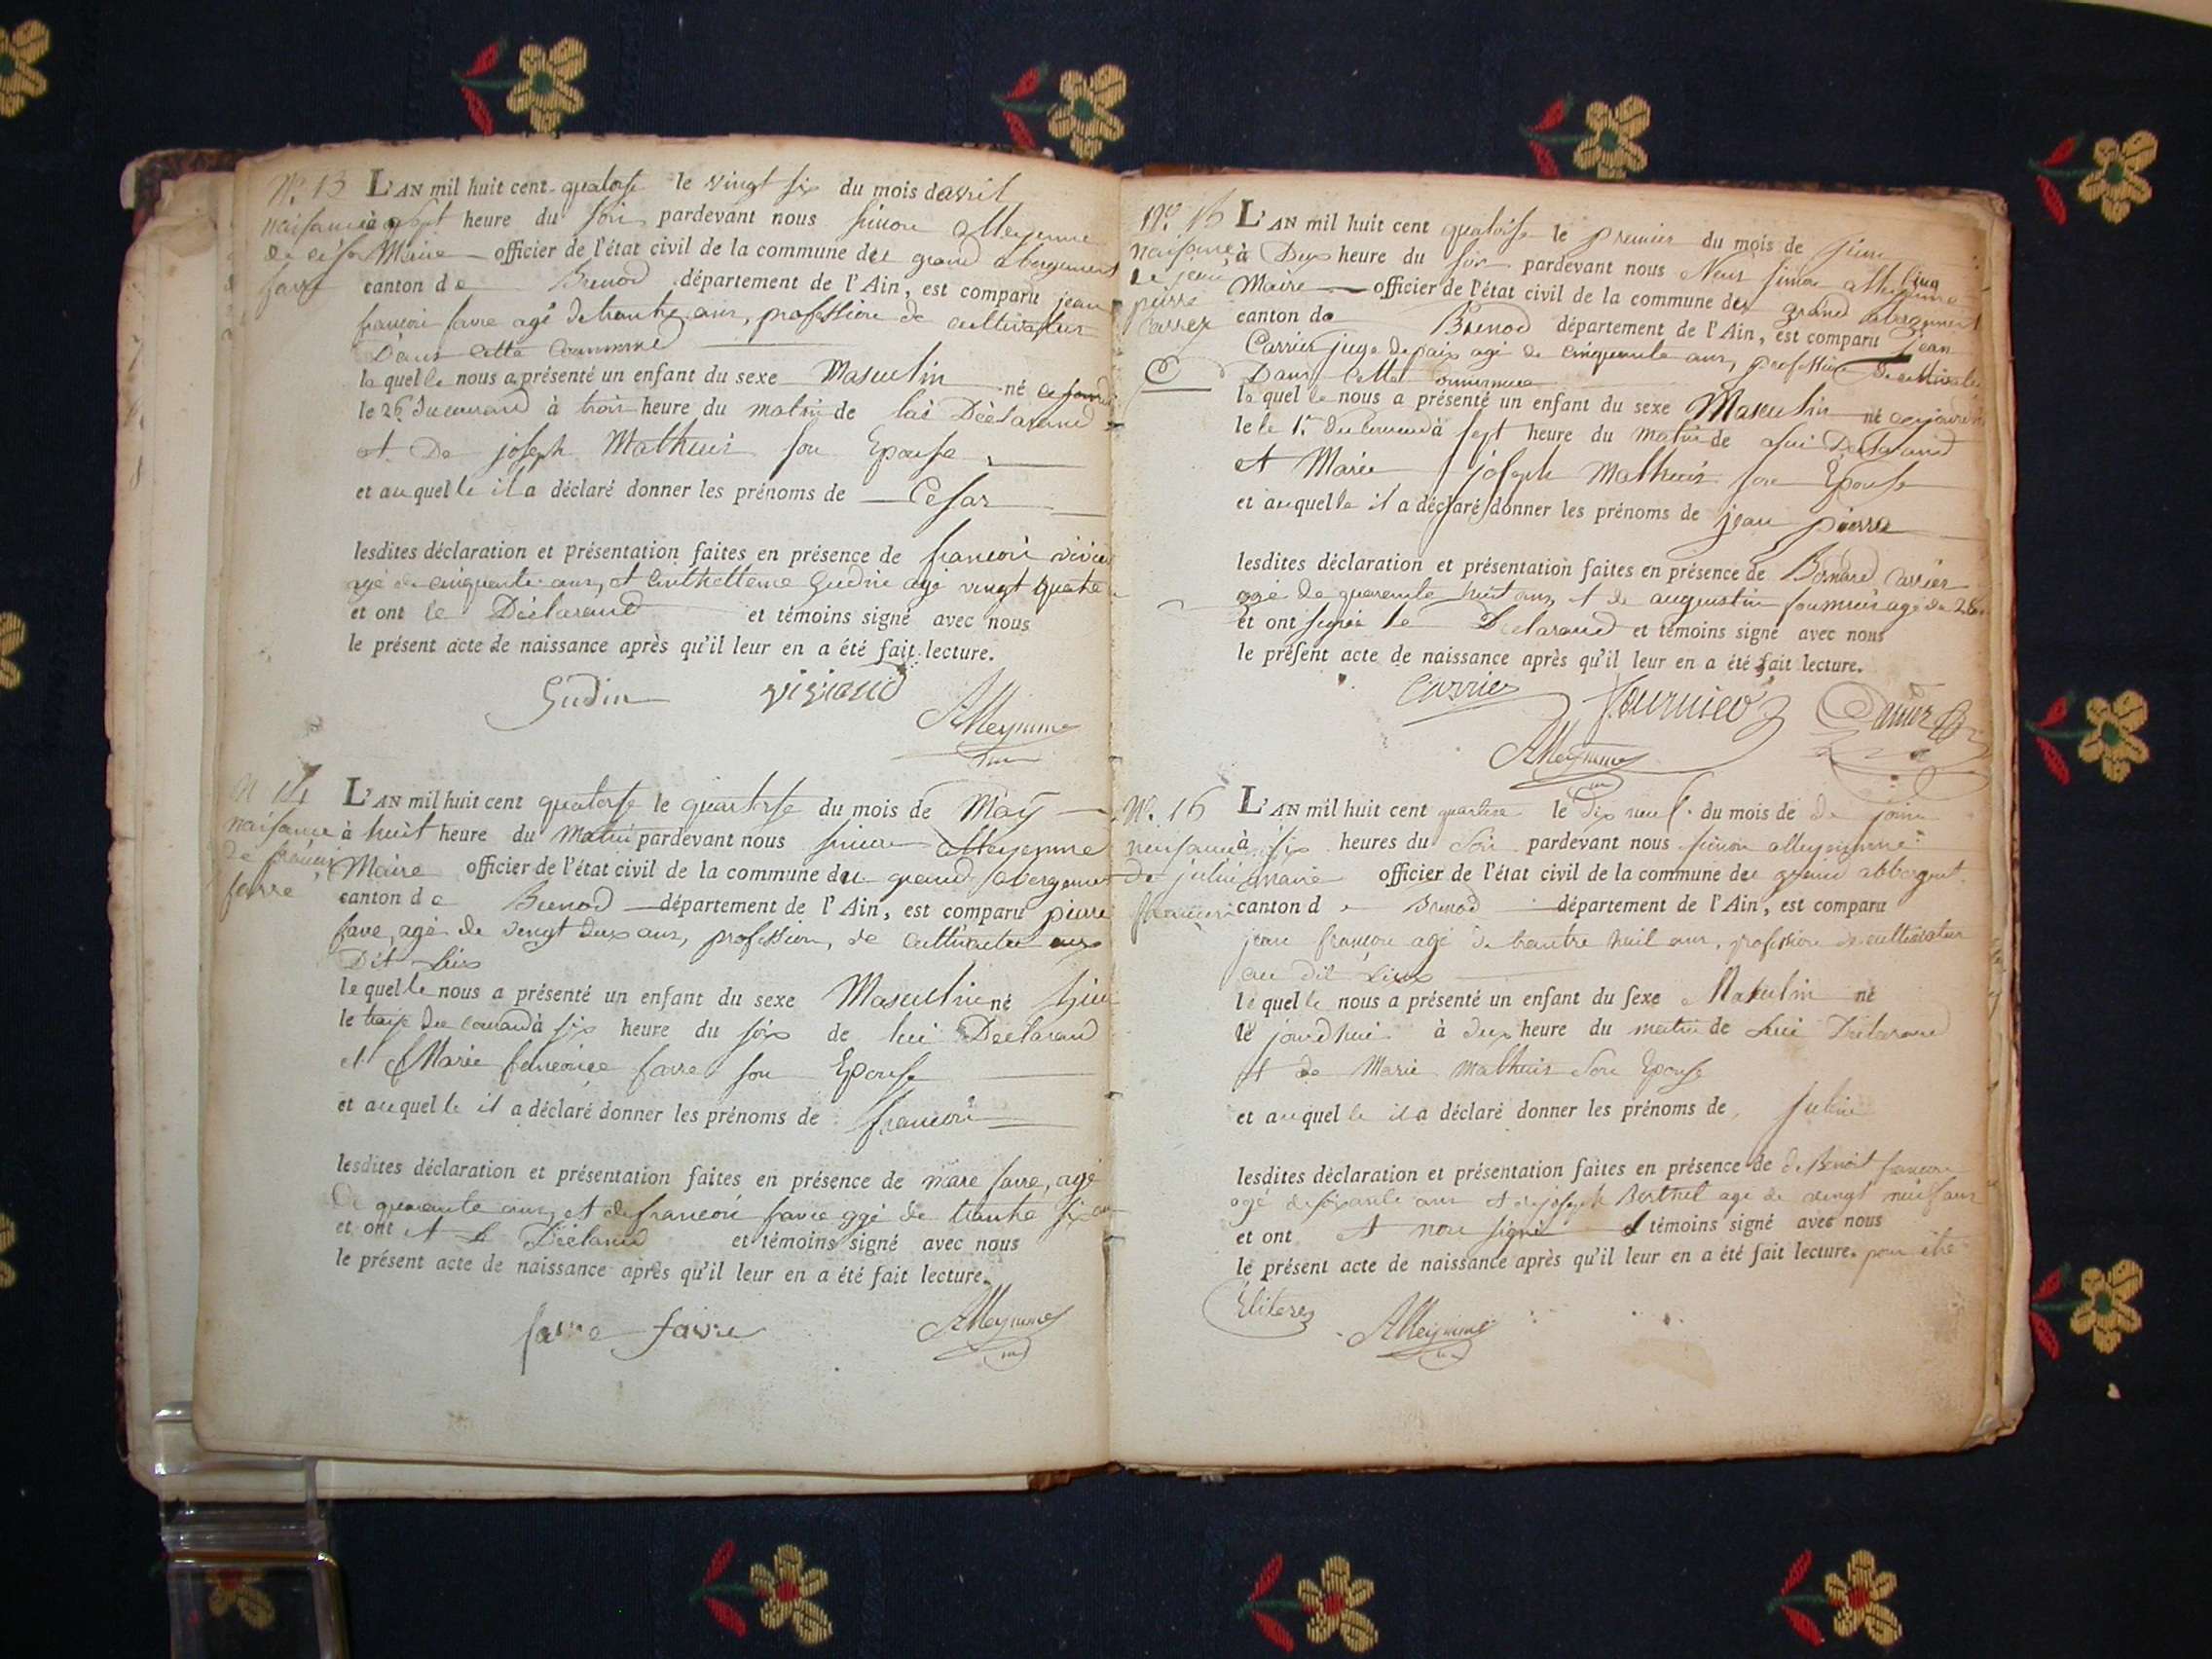 N.º 13
naisance
de césar
favre
L'AN mil huit cent quatorse le vingt six du mois davril
à sept heure du soir pardevant nous simon alleyemme
Maire officier de l'état civil de la commune du grand abergement
canton de Brenod département de l'Ain, est comparu jean
françois favre agé de trante ans, profession de cultivateur
Dans cette commune
lequelle nous a présenté un enfant du sexe Masculin né
le 26 du courand à trois heure du matin de lui Déclarand
et De joseph Mathieu son Epouse
et auquelle il a déclaré donner les prénoms de César
lesdites déclaration et présentation faites en présence de françois
agé de cinquante ans, et Gudin agé vingt quatre
et ont le Déclarand et témoins signé avec nous
le présent acte de naissance après qu'il leur en a été fait lecture.
Gudin viviand
Alleymme
N 14
naisance
de françois
favre
L'AN mil huit cent quatorse le quartorse du mois de May
à huit heure du Matin pardevant nous simon alleyemme
Maire officier de l'état civil de la commune du grand abergement
canton de Brenod département de l'Ain, est comparu pierre
favre, agé de vingt deux ans, profession, de cultivateur aux
Dit Lieu
lequelle nous a présenté un enfant du sexe Masculin né
le treise du courand à six heure du soir de lui Déclarand
et Marie françoise favre son Epouse
et auquelle il a déclaré donner les prénoms de françois
lesdites déclaration et présentation faites en présence de marc favre, agé
De quarente ans, et de françois favre agé de trante six
et ont et le Déclarand et témoins signé avec nous
le présent acte de naissance après qu'il leur en a été fait lecture.
favre favre Alleymme
Nº. 15
naisance
de jean
pierre
Carrier
L'AN mil huit cent quatorse le premier du mois de juin
à Deux heure du soir pardevant nous Nous simon alleyemme
Maire officier de l'état civil de la commune du grand abergement
canton de Brenod département de l'Ain, est comparu jean
Carrier juge de paix agé de cinquante ans, profession de
Dans cette commune
lequelle nous a présenté un enfant du sexe Masculin né
le le 1.er du courand à sept heure du matin de lui Déclarand
et Marie joseph Mathieu son Epouse
et auquelle il a déclaré donner les prénoms de jean pierre
lesdites déclaration et présentation faites en présence de Bernard Carrier
agé de quarente huit ans, et de augustin fournier agé de 28
et ont signé le Déclarand et témoins signé avec nous
le présent acte de naissance après qu'il leur en a été fait lecture.
Carrier fournier Carrier
Alleymme
Nº. 16
naisance
de julin
françois
L'AN mil huit cent quartorse le dix neuf du mois de de join
à six heures du soir pardevant nous simon alleyemme
maire officier de l'état civil de la commune du grand abbergmt
canton de Brenod département de l'Ain, est comparu
jean françois agé de trantre huit ans, profession de cultivateur
au dit Lieu
lequelle nous a présenté un enfant du sexe Masculin né
le jourdhui à deux heure du matin de Lui Déclarand
et de Marie mathieu son Epouse
et auquelle il a déclaré donner les prénoms de julin
lesdites déclaration et présentation faites en présence de de Benoit françois
agé de soixante ans et de joseph Berthet agé de vingt neuf ans
et ont et non signé témoins signé avec nous
le présent acte de naissance après qu'il leur en a été fait lecture. pour être
Eliteres Alleymme